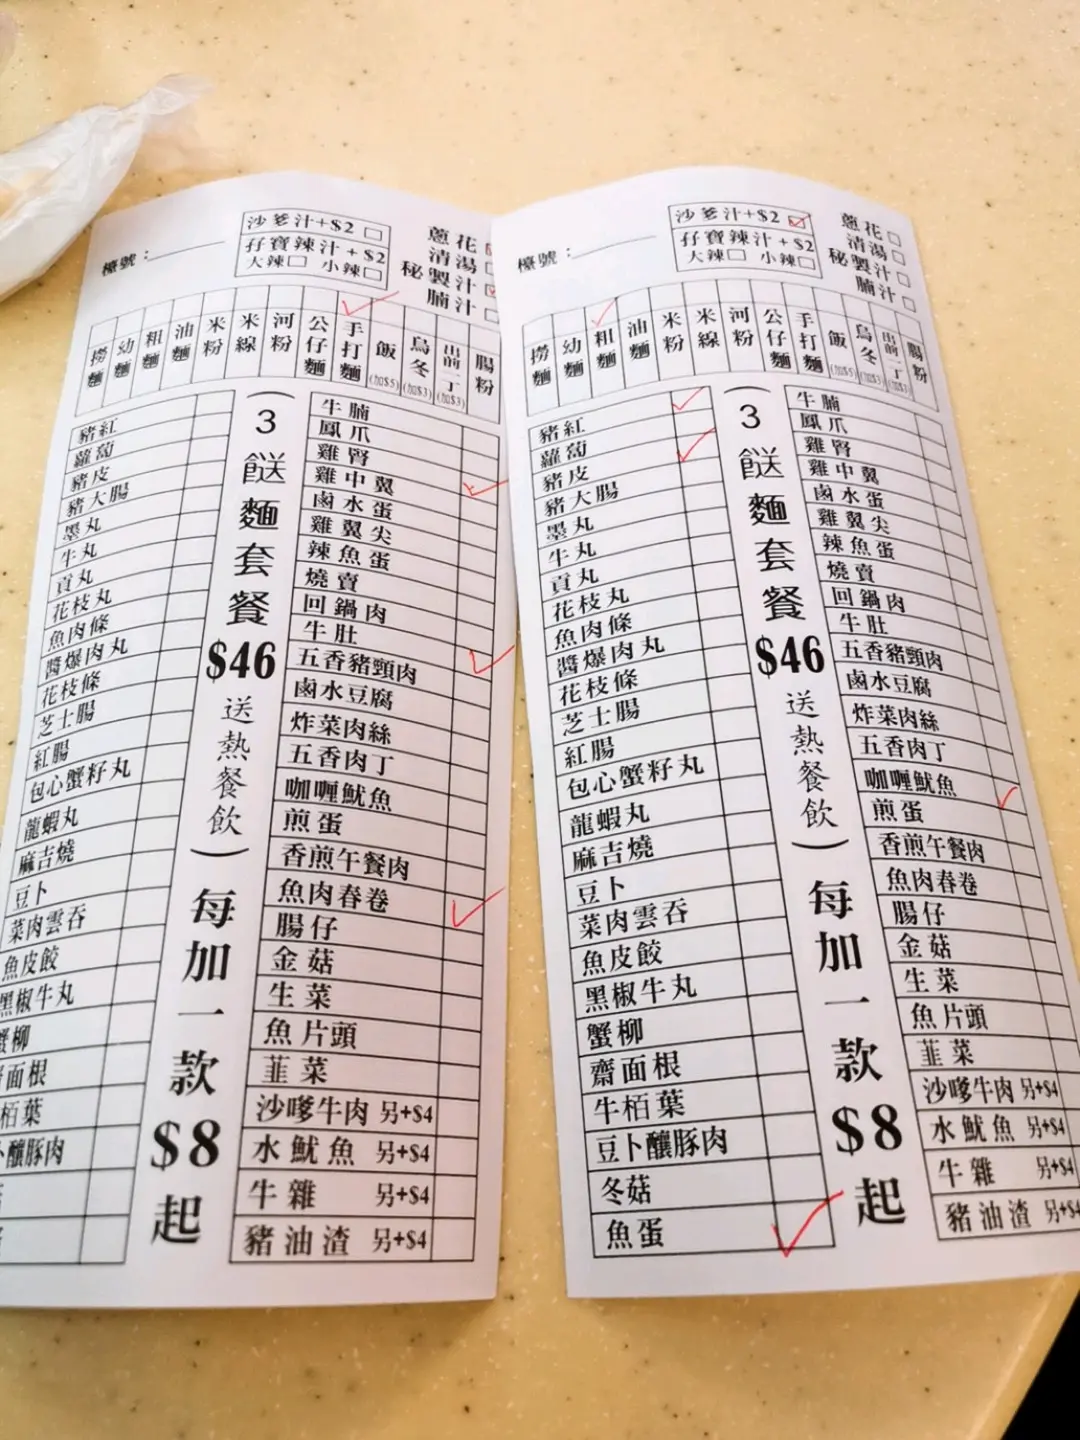 檯號:
沙爹汁+$2
孖寶辣汁+$2
大辣 小辣
蔥花
清湯
秘製汁
腩汁
撈麵
幼麵
粗麵
油麵
米粉
米線
河粉
公仔麵
手打麵
飯(加$5)
烏冬(加$3)
出前一丁(加$3)
腸粉
豬紅
蘿蔔
豬皮
豬大腸
墨丸
牛丸
貢丸
花枝丸
魚肉條
醬爆肉丸
花枝條
芝士腸
紅腸
包心蟹籽丸
龍蝦丸
麻吉燒
豆卜
菜肉雲吞
魚皮餃
黑椒牛丸
蟹柳
面根
栢葉
釀豚肉
(3餸麵套餐$46送熱餐飲)每加一款$8起
牛腩
鳳爪
雞腎
雞中翼
鹵水蛋
雞翼尖
辣魚蛋
燒賣
回鍋肉
牛肚
五香豬頸肉
鹵水豆腐
炸菜肉絲
五香肉丁
咖喱魷魚
煎蛋
香煎午餐肉
魚肉春卷
腸仔
金菇
生菜
魚片頭
韮菜
沙嗲牛肉 另+$4
水魷魚 另+$4
牛雜 另+$4
豬油渣 另+$4
檯號:
沙爹汁+$2
孖寶辣汁+$2
大辣 小辣
蔥花
清湯
秘製汁
腩汁
撈麵
幼麵
粗麵
油麵
米粉
米線
河粉
公仔麵
手打麵
飯(加$5)
烏冬(加$3)
出前一丁(加$3)
腸粉
豬紅
蘿蔔
豬皮
豬大腸
墨丸
牛丸
貢丸
花枝丸
魚肉條
醬爆肉丸
花枝條
芝士腸
紅腸
包心蟹籽丸
龍蝦丸
麻吉燒
豆卜
菜肉雲吞
魚皮餃
黑椒牛丸
蟹柳
齋面根
牛栢葉
豆卜釀豚肉
冬菇
魚蛋
(3餸麵套餐$46送熱餐飲)每加一款$8起
牛腩
鳳爪
雞腎
雞中翼
鹵水蛋
雞翼尖
辣魚蛋
燒賣
回鍋肉
牛肚
五香豬頸肉
鹵水豆腐
炸菜肉絲
五香肉丁
咖喱魷魚
煎蛋
香煎午餐肉
魚肉春卷
腸仔
金菇
生菜
魚片頭
韮菜
沙嗲牛肉 另+$4
水魷魚 另+$4
牛雜 另+$4
豬油渣 另+$4